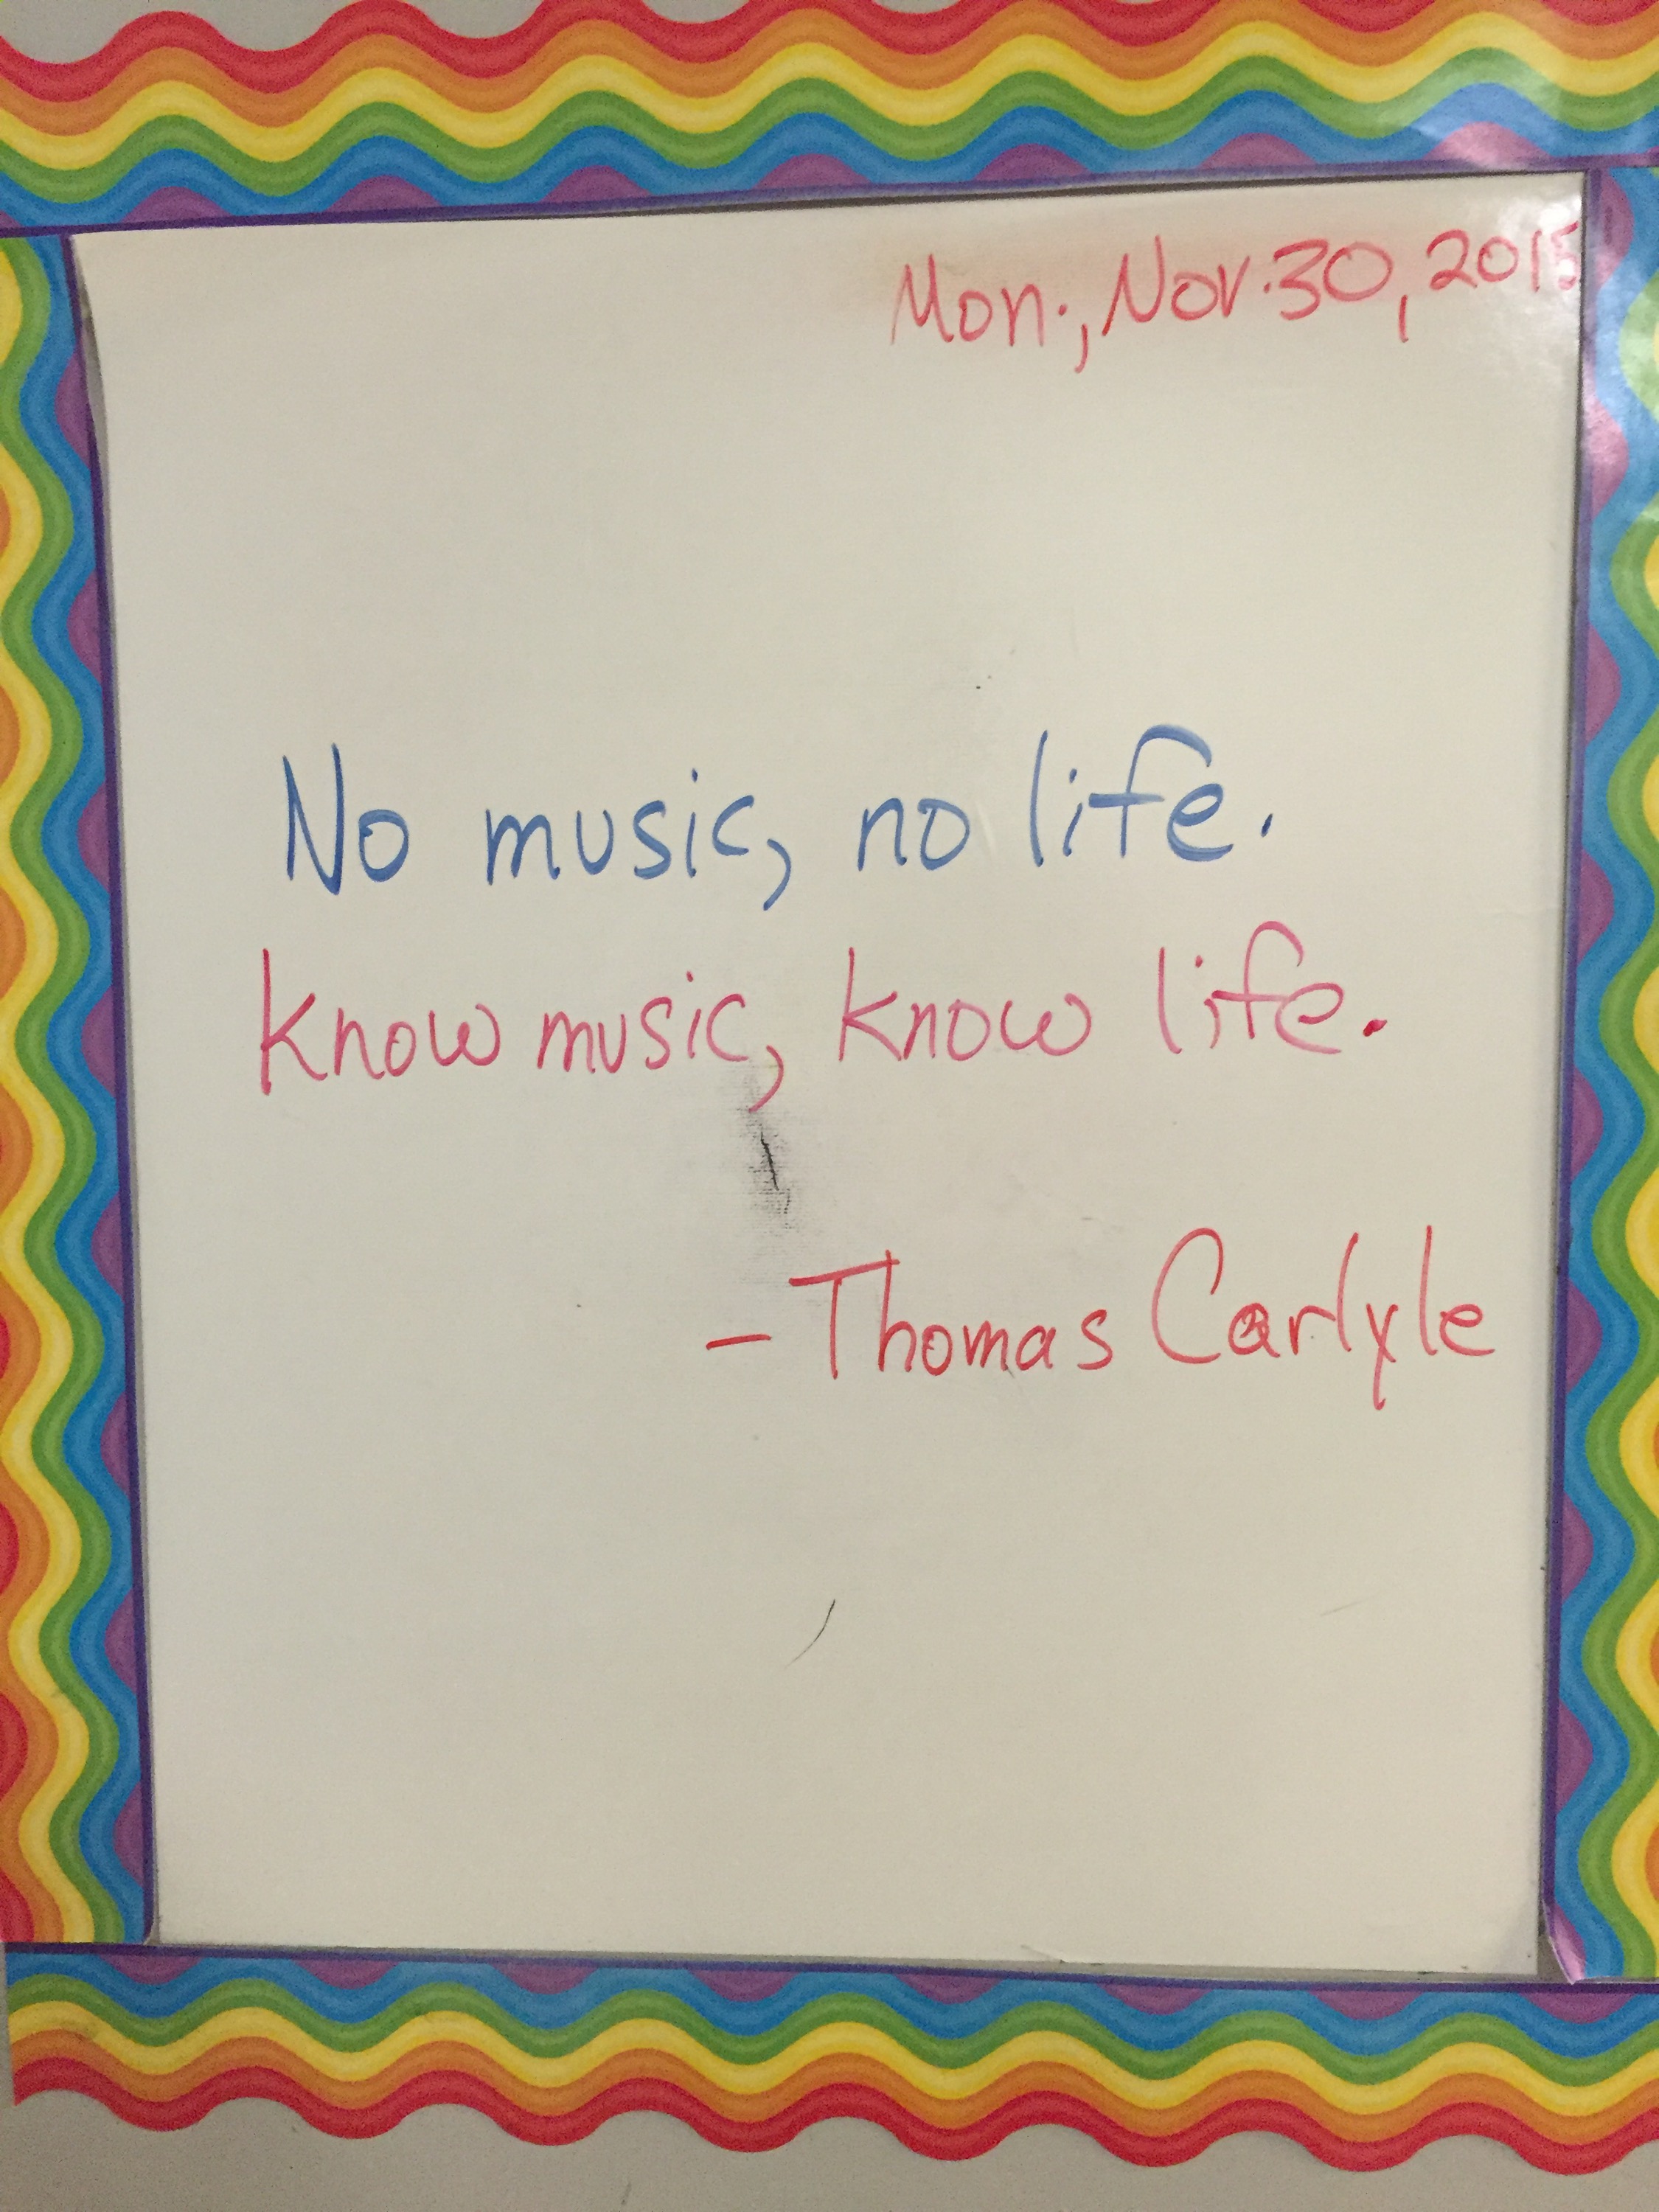 Mon., Nov. 30, 2015
No music, no life.
know music, know life.
- Thomas Carlyle